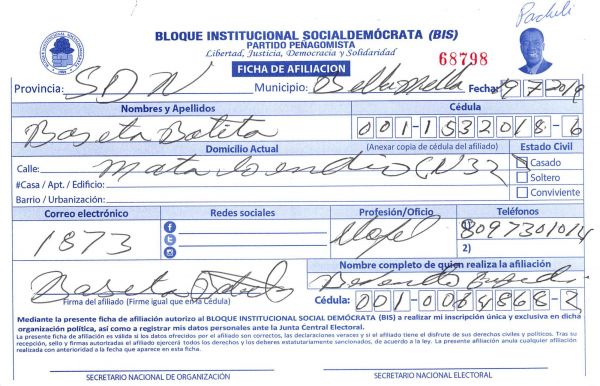 Pacheli
BLOQUE INSTITUCIONAL SOCIALDEMÓCRATA (BIS)
PARTIDO PEÑAGOMISTA
Libertad, Justicia, Democracia y Solidaridad
68798
FICHA DE AFILIACION
Provincia: SDN Municipio: Fecha: 19 7 2018
Nombres y Apellidos Cédula
Baseta Batita 001-1532018-6
Domicilio Actual (Anexar copia de cédula del afiliado) Estado Civil
Calle: Mata Casado
#Casa / Apt. / Edificio: Soltero
Barrio / Urbanización: Conviviente
Correo electrónico Redes sociales Profesión/Oficio Teléfonos
1873 1) 8097301014
2)
Nombre completo de quien realiza la afiliación
Baseta
Firma del afiliado (Firme igual que en la Cédula) Cédula: 001-0064868-2
Mediante la presente ficha de afiliación autorizo al BLOQUE INSTITUCIONAL SOCIAL DEMÓCRATA (BIS) a realizar mi inscripción única y exclusiva en dicha
organización política, así como a registrar mis datos personales ante la Junta Central Electoral.
La presente ficha de afiliación es válida si los datos ofrecidos por el afiliado son correctos, las declaraciones veraces y si el afiliado tiene el disfrute de sus derechos civiles y políticos. Tras su
recepción, sello y firmas autorizadas el afiliado ejercerá todos los derechos y los deberes estatutariamente sancionados, de acuerdo a la ley. La presente afiliación anula cualquier afiliación
realizada con anterioridad a la fecha que aparece en esta ficha.
SECRETARIO NACIONAL DE ORGANIZACIÓN SECRETARIO NACIONAL ELECTORAL